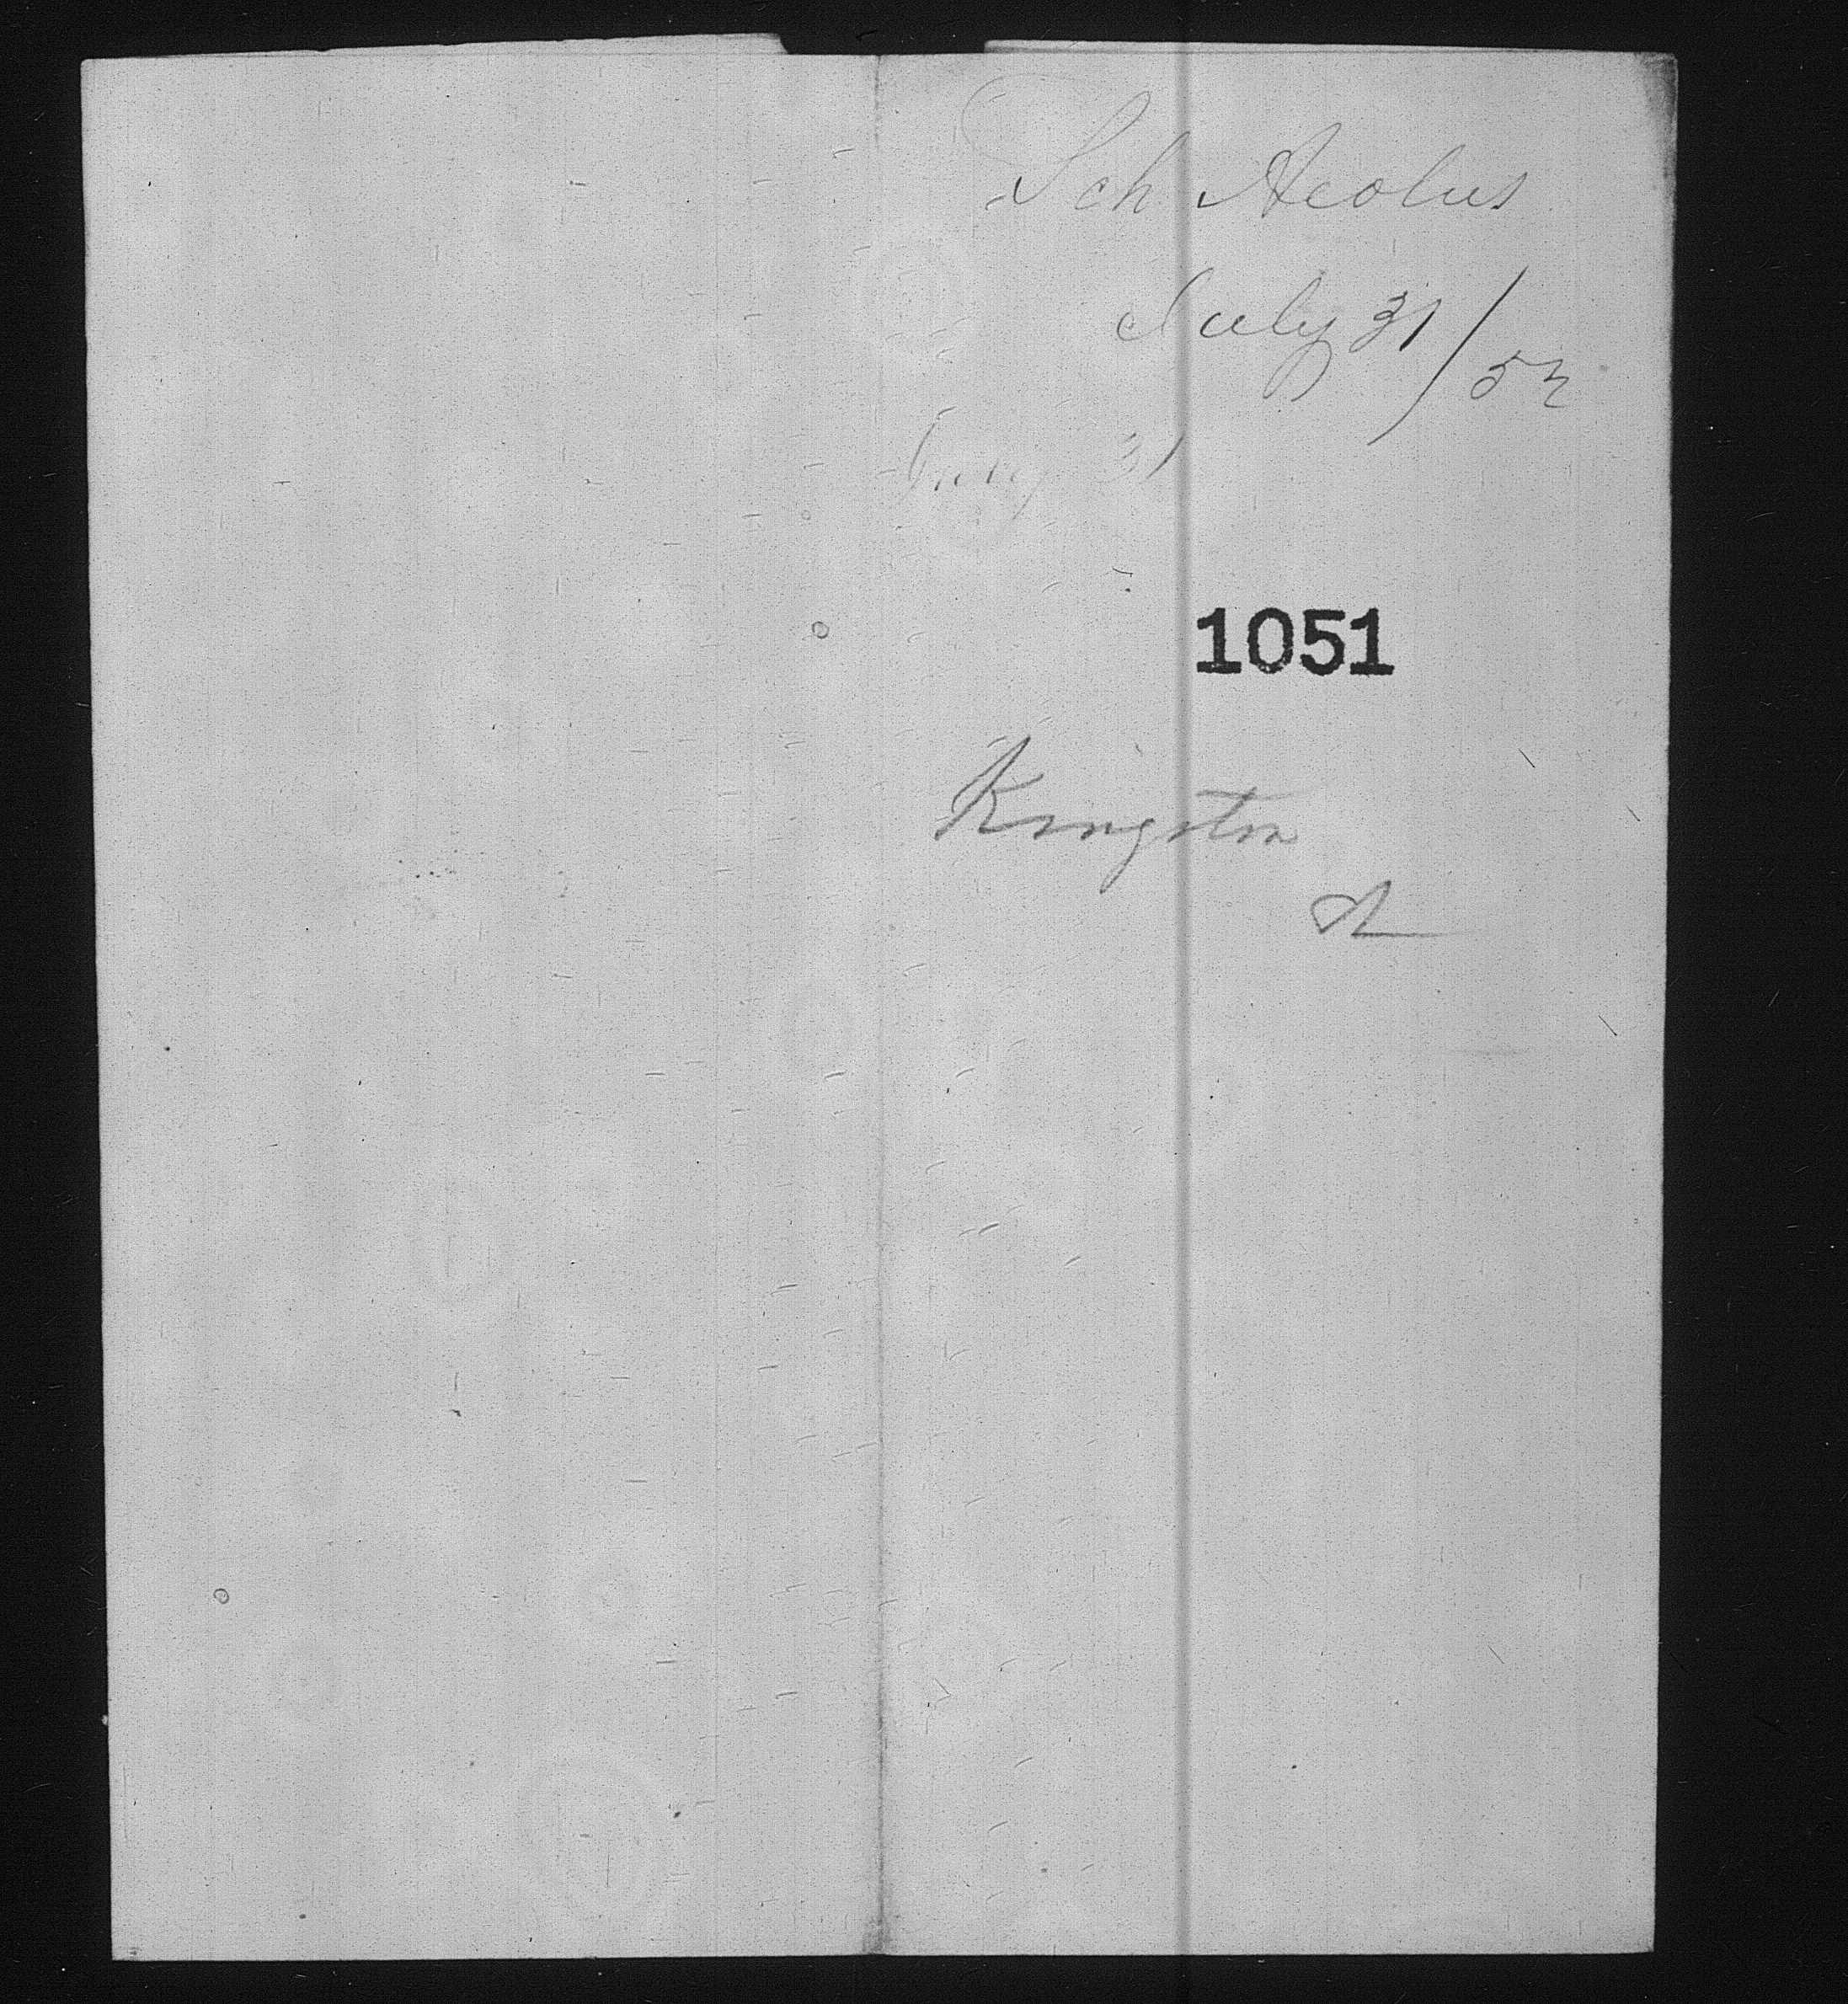 Sch Aeolus
July 31/52
July 31
1051
Kingston
A